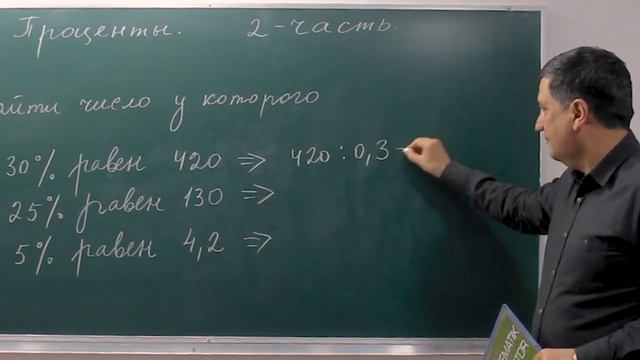 Проценты. 2-часть.
айти число у которого
30% равен 420 => 420:0,3 -
25% равен 130 =>
5% равен 4,2 =>